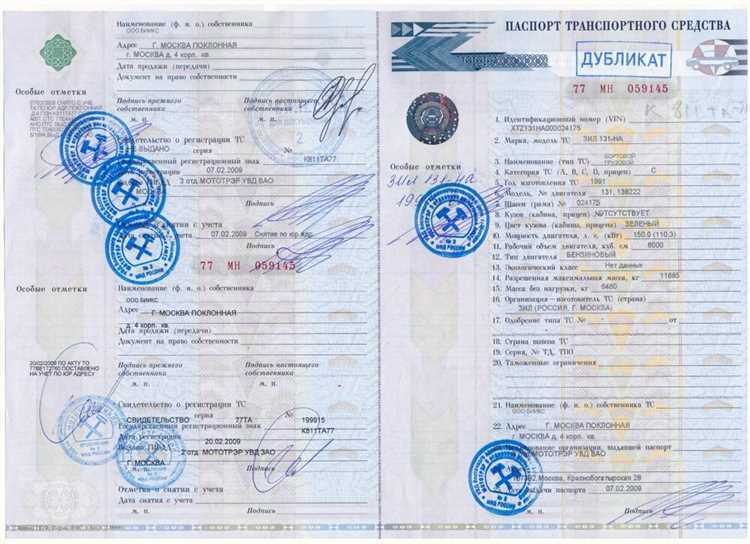 Наименование (ф. и. о.) собственника
ООО БИИКС
Адрес Г. МОСКВА ПОКЛОННАЯ
г. МОСКВА д. 4 корп. кв.
Дата продажи (передачи)
Документ на право собственности
Особые отметки
Подпись прежнего собственника
Подпись настоящего собственника
м. п.
м. п.
Свидетельство о регистрации ТС
НЕ ВЫДАНО серия №
Государственный регистрационный знак К811ТА77
Дата регистрации 07.02.2009
2 отд МОТОТРЭР УВД ВАО
м. п. Подпись
Отметка о снятии с учета
Дата снятия с учета 07.02.2009 Снятие по юр.адр.
м. п. Подпись
77 МН 059145
Особые отметки
Наименование (ф. и. о.) собственника
ООО БИИКС
Адрес Г. МОСКВА ПОКЛОННАЯ
д. 4 корп. кв.
Дата продажи (передачи)
Документ на право собственности
20/02/2009 ПО АКТУ ТО
77ВЕ172760 ПОСТАВЛЕНО
НА УЧЕТ ПО ЮР АДРЕСУ
Подпись прежнего собственника
Подпись настоящего собственника
м. п.
м. п.
Свидетельство о регистрации ТС
СВИДЕТЕЛЬСТВО серия 77ТА № 199915
Государственный регистрационный знак К811ТА77
Дата регистрации 20.02.2009
2 отд. МОТОТРЭР УВД ВАО
Г.МОСКВА
м. п. Подпись
Отметка о снятии с учета
Дата снятия с учета
м. п. Подпись
ПАСПОРТ ТРАНСПОРТНОГО СРЕДСТВА
ДУБЛИКАТ
77 МН 059145
К 811 ТА
1. Идентификационный номер (VIN)
XTZ131НА000024175
2. Марка, модель ТС ЗИЛ 131-НА
3. Наименование (тип ТС) БОРТОВОЙ ГРУЗОВОЙ
4. Категория ТС (A, B, C, D, прицеп) C
5. Год изготовления ТС 1991
6. Модель, № двигателя 131, 138222
7. Шасси (рама) № 024175
8. Кузов (кабина, прицеп) № ОТСУТСТВУЕТ
9. Цвет кузова (кабины, прицепа) ЗЕЛЕНЫЙ
10. Мощность двигателя, л. с. (кВт) 150.0 (110.3)
11. Рабочий объем двигателя, куб. см 6000
12. Тип двигателя БЕНЗИНОВЫЙ
13. Экологический класс Нет данных
14. Разрешенная максимальная масса, кг 11685
15. Масса без нагрузки, кг 6460
16. Организация–изготовитель ТС (страна)
ЗИЛ (РОССИЯ, Г. МОСКВА)
17. Одобрение типа ТС № от
18. Страна вывоза ТС
19. Серия, № ТД, ТПО
20. Таможенные ограничения
Особые отметки
ЗИЛ 131-НА
21. Наименование (ф. и. о.) собственника ТС
ООО БИИКС
22. Адрес Г. МОСКВА ПОКЛОННАЯ
Г.МОСКВА д. 4 корп. кв.
23. Наименование организации, выдавшей паспорт
МОТОТРЭР УВД ВАО
Москва, Краснобогатырская 28
Дата выдачи паспорта 07.02.2009
м. п. Подпись